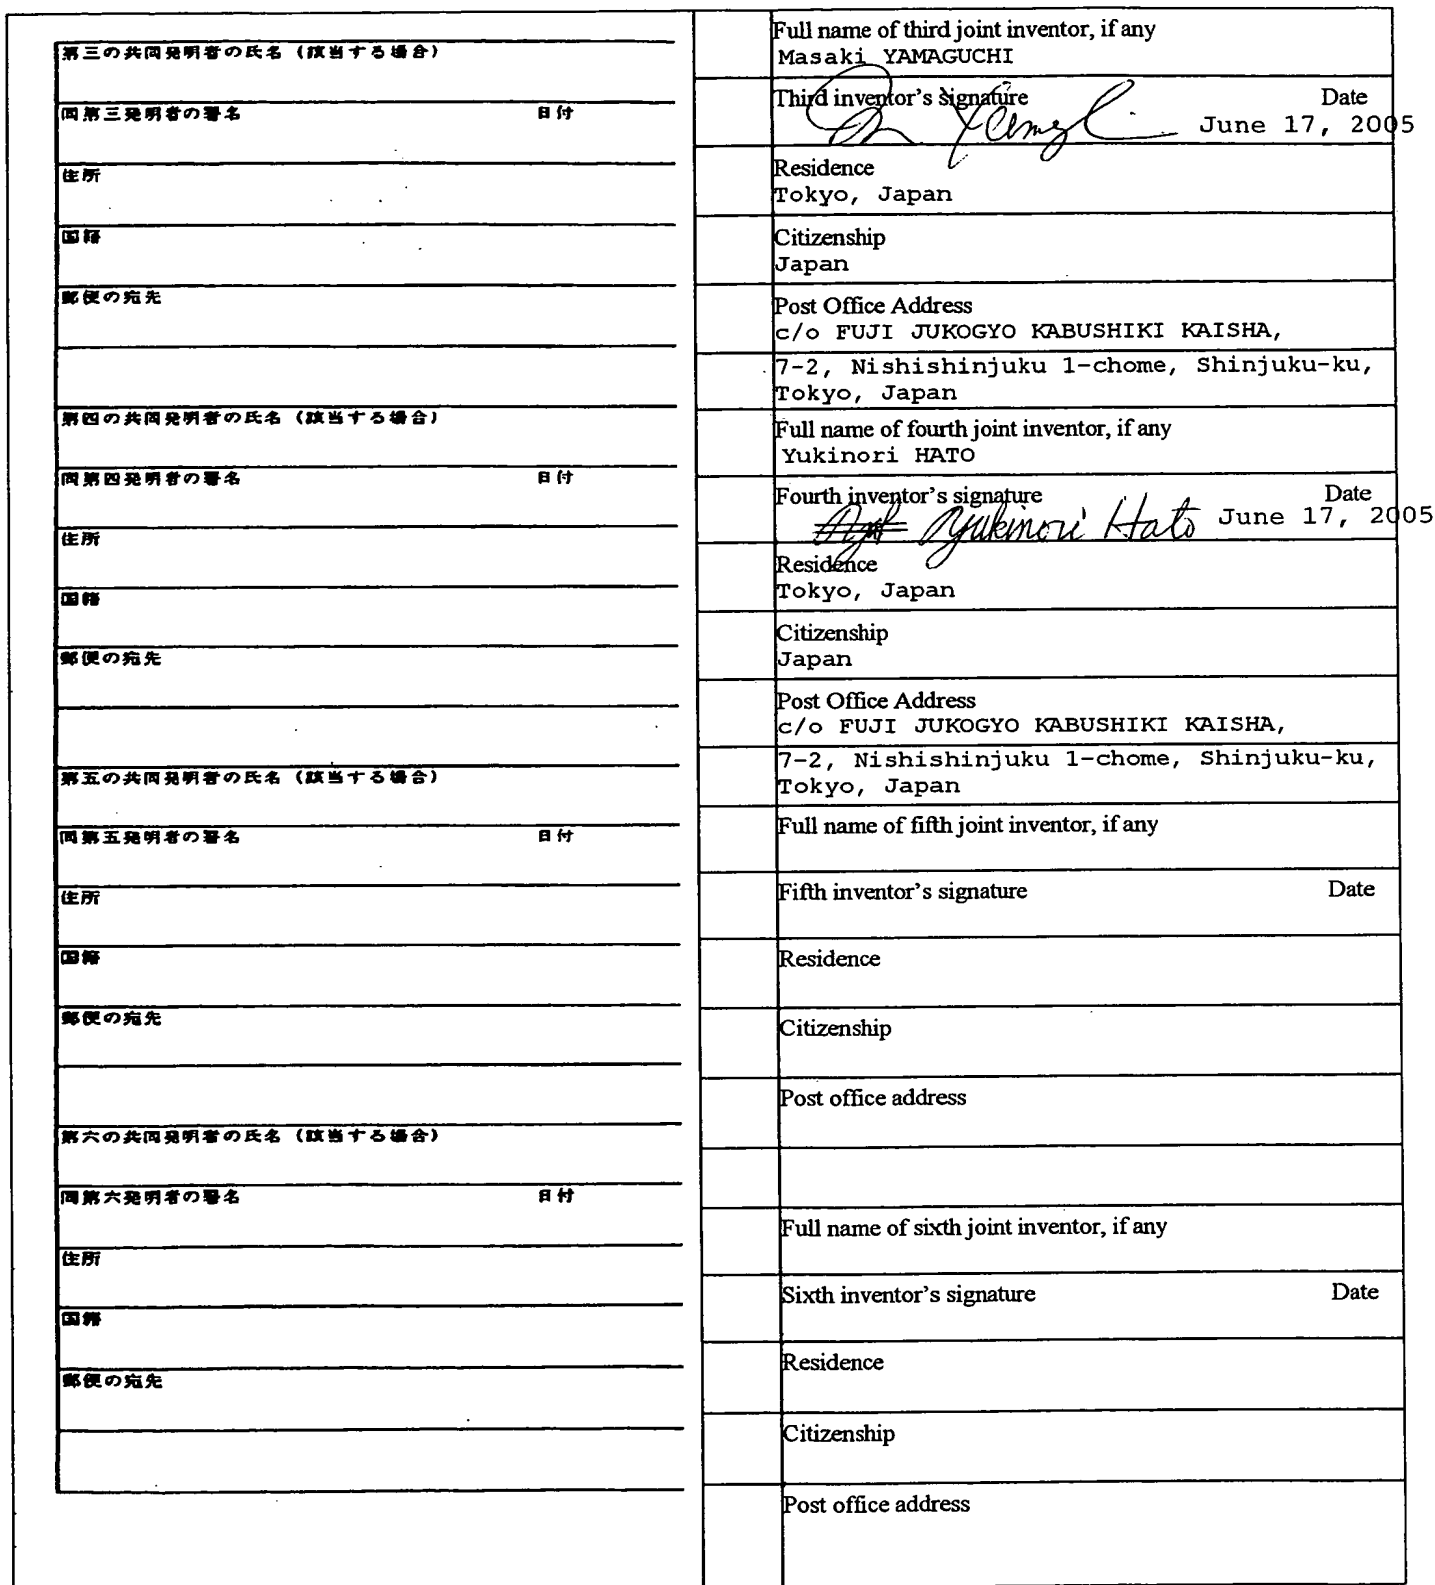 第三の共同発明者の氏名 (該当する場合)
同第三発明者の署名 日付
住所
国籍
郵便の宛先
第四の共同発明者の氏名 (該当する場合)
同第四発明者の署名 日付
住所
国籍
郵便の宛先
第五の共同発明者の氏名 (該当する場合)
同第五発明者の署名 日付
住所
国籍
郵便の宛先
第六の共同発明者の氏名 (該当する場合)
同第六発明者の署名 日付
住所
国籍
郵便の宛先
Full name of third joint inventor, if any
Masaki YAMAGUCHI
Third inventor's signature Date
June 17, 2005
Residence
Tokyo, Japan
Citizenship
Japan
Post Office Address
c/o FUJI JUKOGYO KABUSHIKI KAISHA,
7-2, Nishishinjuku 1-chome, Shinjuku-ku,
Tokyo, Japan
Full name of fourth joint inventor, if any
Yukinori HATO
Fourth inventor's signature Date
Yukinori Hato June 17, 2005
Residence
Tokyo, Japan
Citizenship
Japan
Post Office Address
c/o FUJI JUKOGYO KABUSHIKI KAISHA,
7-2, Nishishinjuku 1-chome, Shinjuku-ku,
Tokyo, Japan
Full name of fifth joint inventor, if any
Fifth inventor's signature Date
Residence
Citizenship
Post office address
Full name of sixth joint inventor, if any
Sixth inventor's signature Date
Residence
Citizenship
Post office address